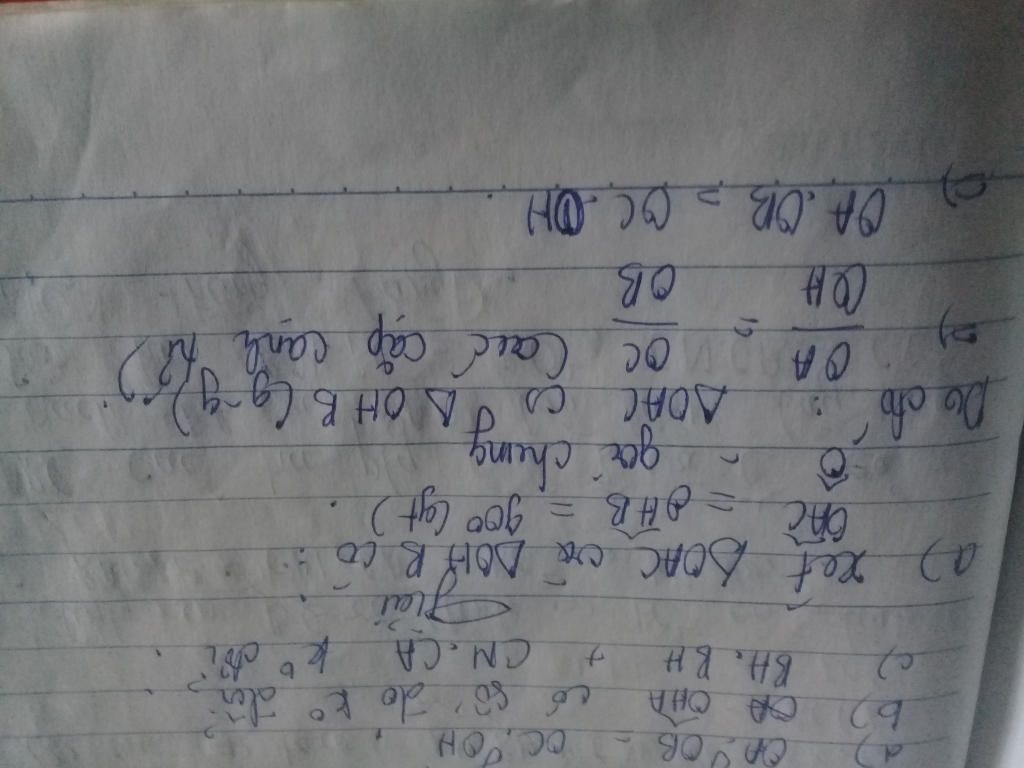 a) OA.OB = OC.OH.
b) OA OHA có số đo k° đổi?
c) BH.BH + CM.CA k° đổi.
Giải
a) xét ΔOAC và ΔOHB có:
OAC = OHB = 90° (gt).
O - góc chung
Do đó: ΔOAC ∽ ΔOHB (g-g)
=> OA/OH = OC/OB (các cặp cạnh tỉ)
=) OA.OB = OC.OH